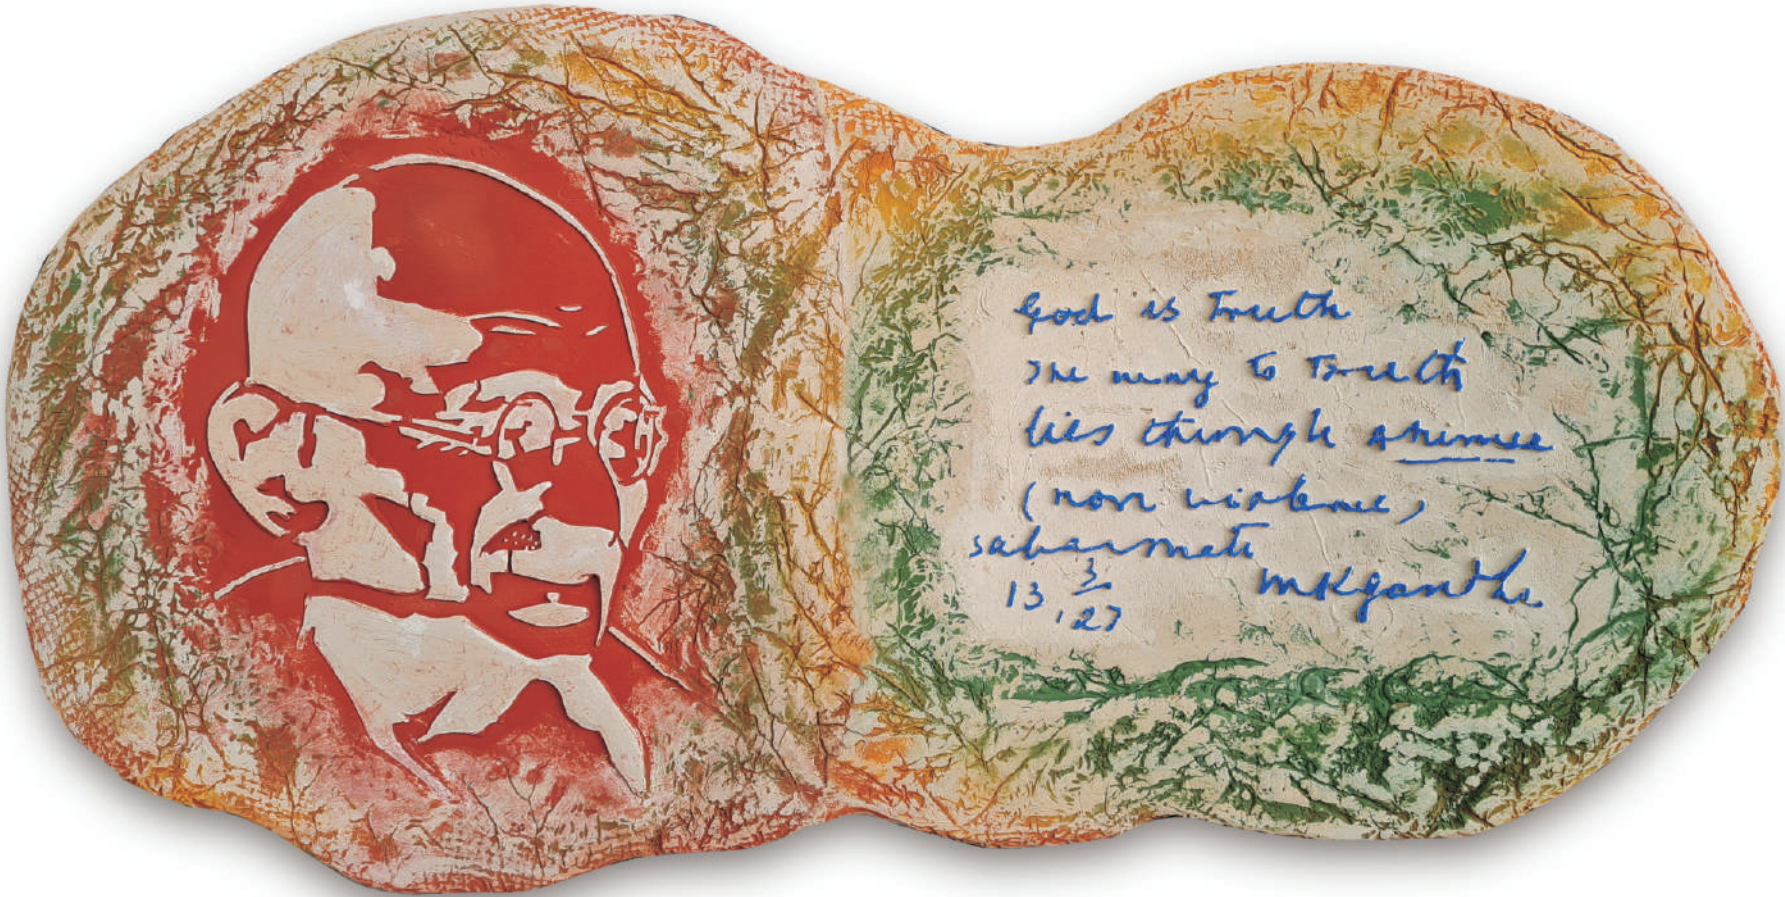 God is Truth
The way to Truth
lies through ahimsa
(non violence)
Sabarmati
13 3 '27
MKGandhi